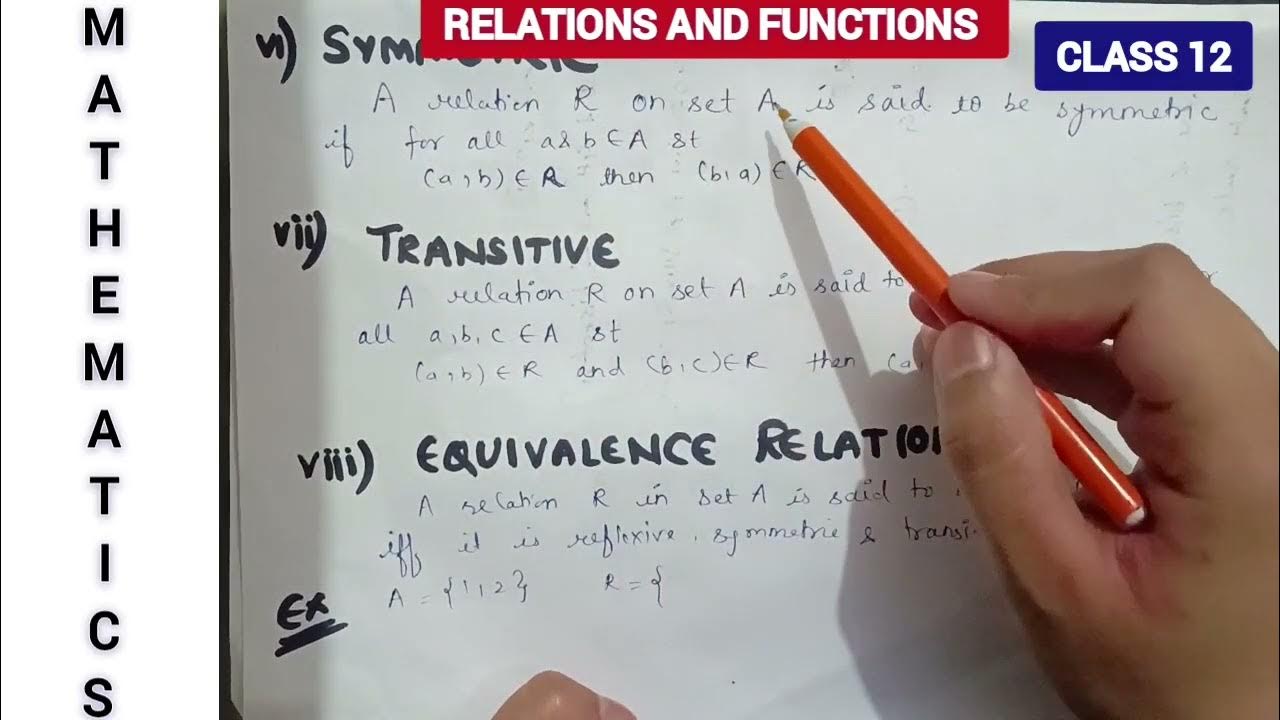 MATHEMATICS
RELATIONS AND FUNCTIONS
CLASS 12
vi) SYMMETRIC
A relation R on set A is said to be symmetric
if for all a & b ∈ A st
(a, b) ∈ R then (b, a) ∈ R
vii) TRANSITIVE
A relation R on set A is said to
all a, b, c ∈ A st
(a, b) ∈ R and (b, c) ∈ R then (a,
viii) EQUIVALENCE RELATION
A relation R in set A is said to
iff it is reflexive, symmetric &
Ex A = {1, 2} R = {